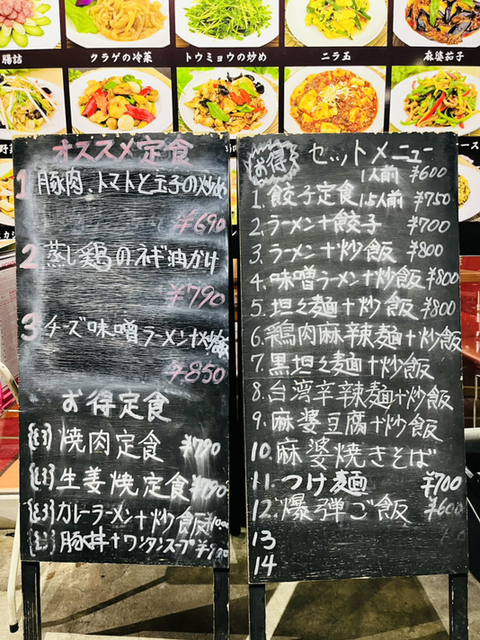 腸詰
クラゲの冷菜
トウミョウの炒め
ニラ玉
麻婆茄子
オススメ定食
1 豚肉、トマトと玉子の炒め
¥690
2 蒸し鶏のネギ油かけ
¥790
3 チーズ味噌ラーメン+炒飯
¥850
お得定食
焼肉定食 ¥790
生姜焼定食 ¥790
カレーラーメン+炒飯
豚丼+ワンタンスープ
お得 セットメニュー
1人前 ¥600
1. 餃子定食 1.5人前 ¥750
2. ラーメン+餃子 ¥700
3. ラーメン+炒飯 ¥800
4. 味噌ラーメン+炒飯 ¥800
5. 坦々麺+炒飯 ¥800
6. 鶏肉麻辣麺+炒飯
7. 黒坦々麺+炒飯
8. 台湾辛辣麺+炒飯
9. 麻婆豆腐+炒飯
10. 麻婆焼きそば
11. つけ麺 ¥700
12. 爆弾ご飯 ¥600
13
14